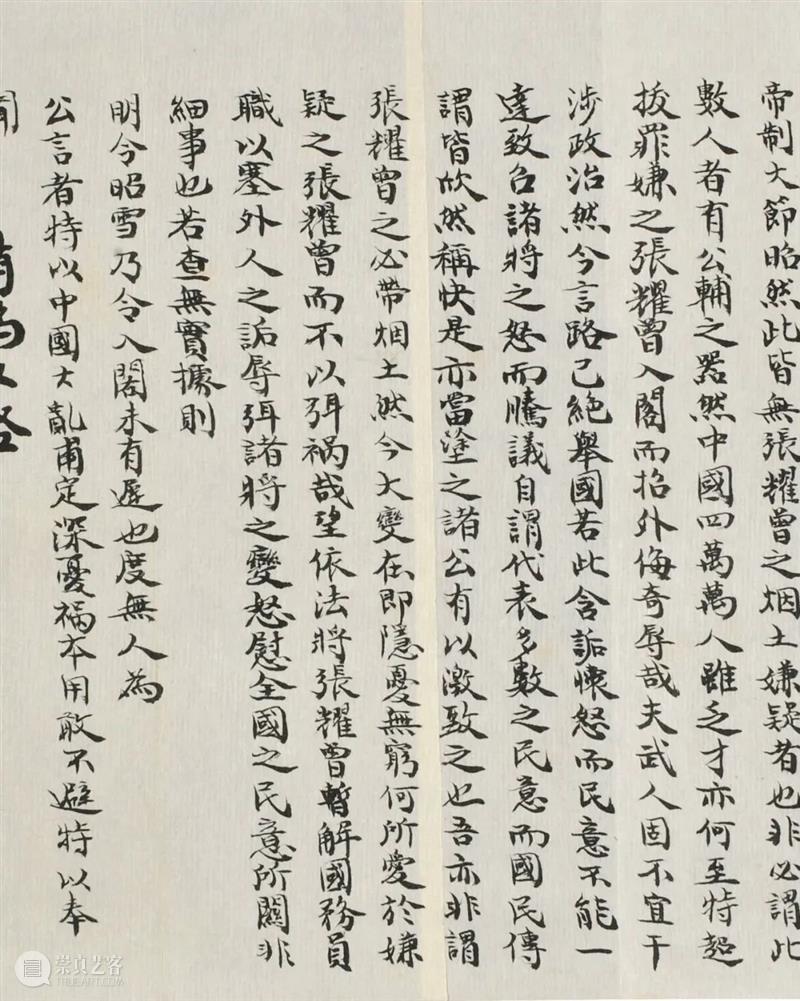 帝制大節昭然此皆無張耀曾之烟土嫌疑者也非必謂此
數人者有公輔之器然中國四萬萬人雖乏才亦何至特起
拔罪嫌之張耀曾入閣而招外侮奇辱哉夫武人固不宜干
涉政治然今言路已絕舉國若此含詬懷怒而民意不能一
達致召諸將之怒而騰議自謂代表多數之民意而國民傳
謂皆欣然稱快是亦當塗之諸公有以激致之也吾亦非謂
張耀曾之必帶烟土然今大變在即隱憂無窮何所愛於嫌
疑之張耀曾而不以弭禍哉望依法將張耀曾暫解國務員
職以塞外人之詬辱弭諸將之變怒慰全國之民意所關非
細事也若查無實據則
明令昭雪乃令入閣未有遲也度無人為
公言者特以中國大亂甫定深憂禍本用敢不避特以奉
聞
有為又啓
崇真艺客